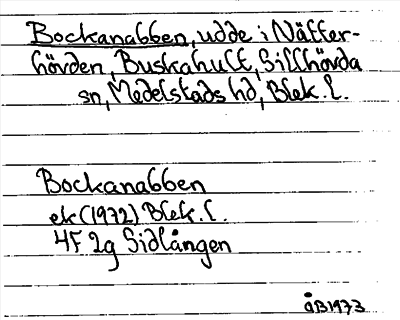 Bockanabben, udde i Nätter-
hövden, Buskahult, Sillhövda
sn, Medelstads hd, Blek. l.
Bockanabben
ek (1972) Blek. l.
4F 2g Sidlången
ÅB 1973